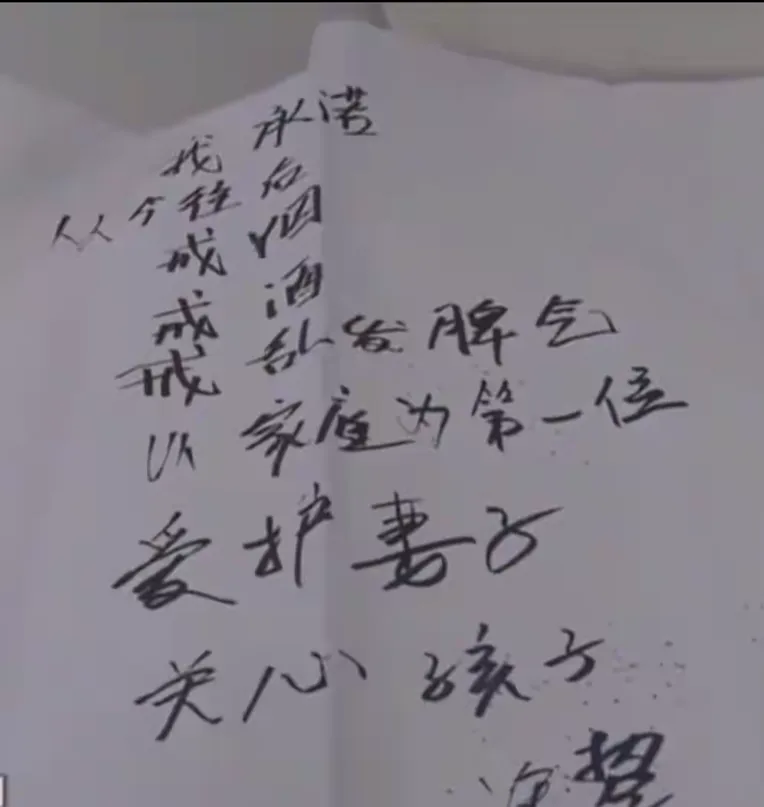 我承诺
从今往后
戒烟
戒酒
戒乱发脾气
以家庭为第一位
爱护妻子
关心孩子